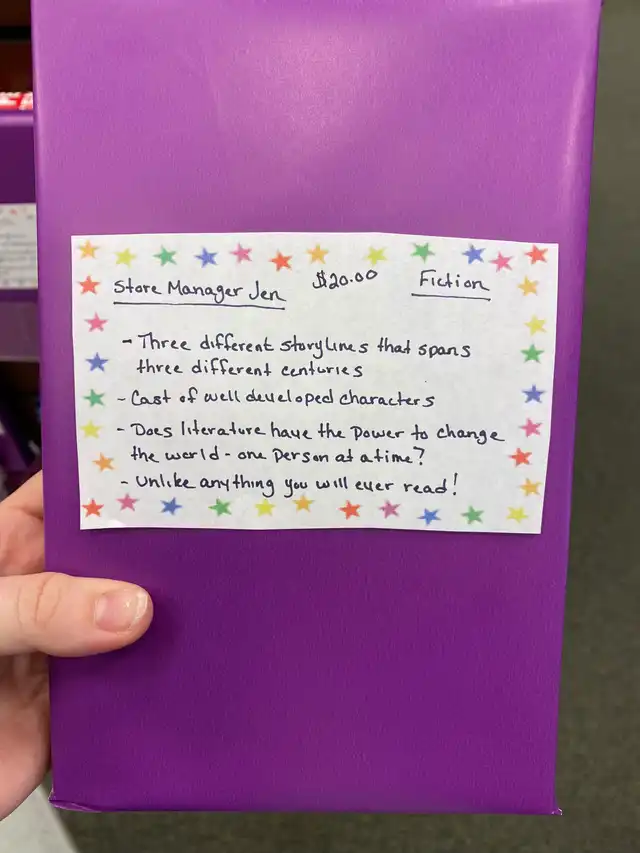 Store Manager Jen $20.00 Fiction
- Three different storylines that spans
three different centuries
- Cast of well developed characters
- Does literature have the power to change
the world - one person at a time?
- Unlike anything you will ever read!